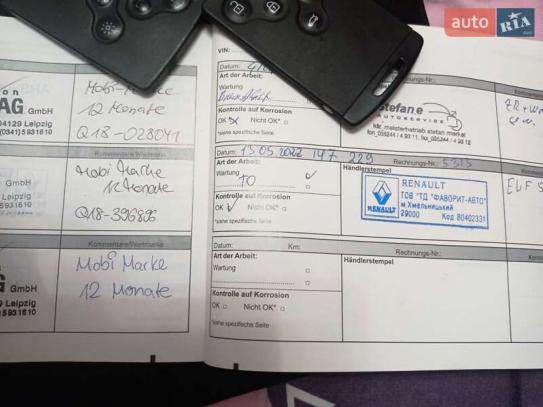 auto RIA.com
AG. GmbH
04129 Leipzig
(0341) 5 93 16 10
Mobi-Marke
12 Monate
Q18-028041
Kommentare/Wertmarke
GmbH
9 Leipzig
5 93 16 10
Mobi Marke
12 Monate
Q18-396896
Kommentare/Wertmarke
AG GmbH
9 Leipzig
5 93 16 10
Mobi Marke
12 Monate
VIN:
Datum:
Art der Arbeit:
Wartung
Kontrolle auf Korrosion
OK Nicht OK*
*siehe spezifische Seite
Rechnungs-Nr.:
stefan
AUTOSERVICE
kfz. meisterbetrieb stefan merkel
Datum: 13.05.2022 147 229
Rechnungs-Nr.: 5313
Art der Arbeit:
Wartung
TO
Kontrolle auf Korrosion
OK Nicht OK*
*siehe spezifische Seite
Händlerstempel
RENAULT
RENAULT
ТОВ "ТД "ФАВОРИТ-АВТО"
м.Хмельницький
29000 Код 80402331
ELF
Datum: Km:
Rechnungs-Nr.:
Art der Arbeit:
Wartung
Kontrolle auf Korrosion
OK Nicht OK*
*siehe spezifische Seite
Händlerstempel